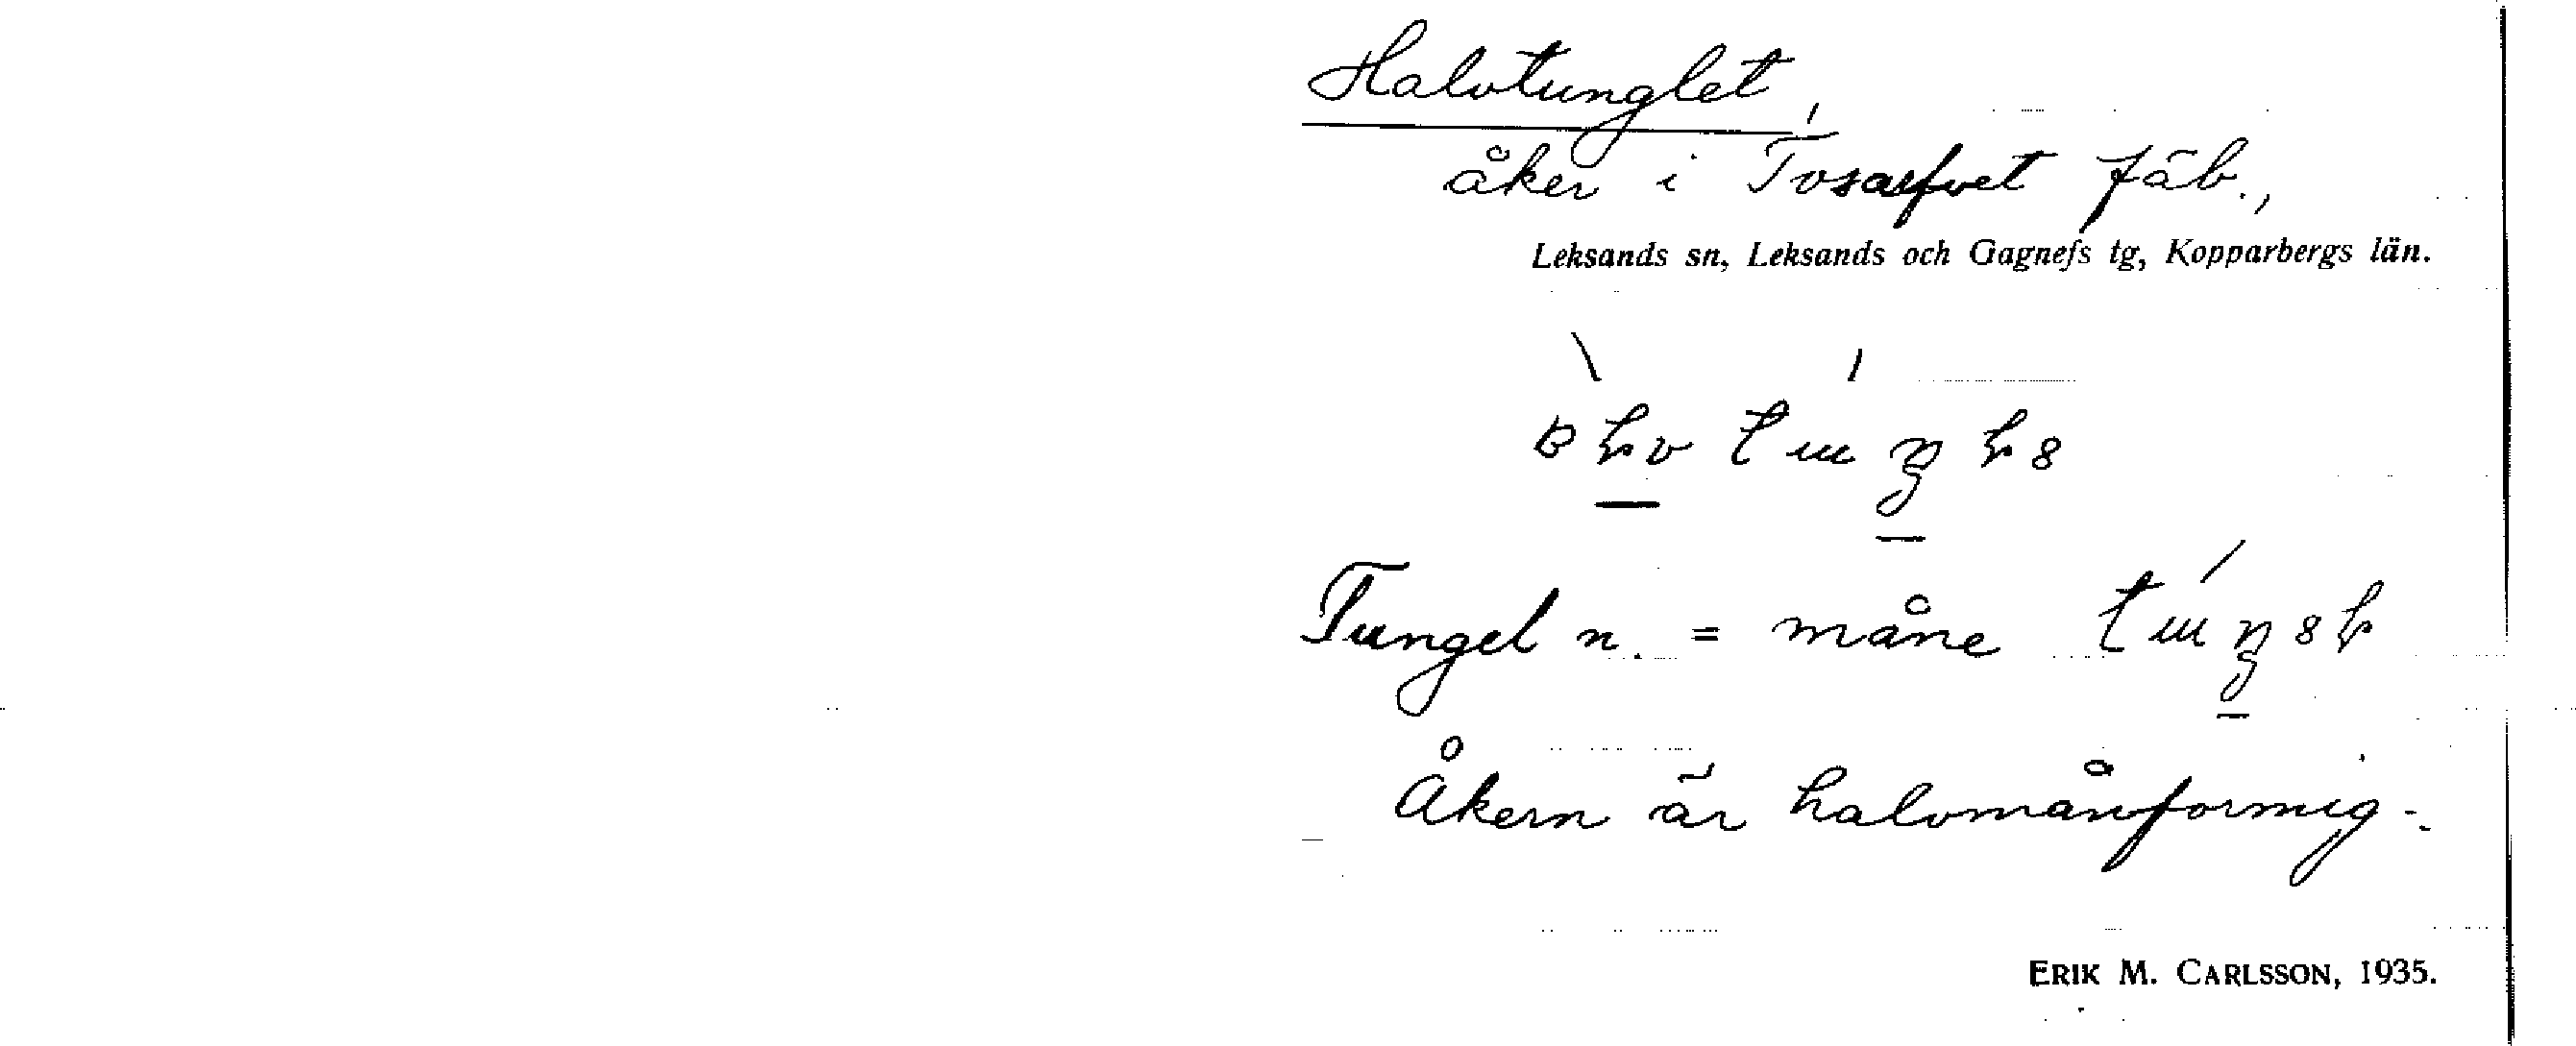 Halvtunglet,
åker i Tvsarfvet fäb.,
Leksands sn, Leksands och Gagnefs tg, Kopparbergs län.
Tungel n. = måne
Åkern är halvmånformig.
ERIK M. CARLSSON, 1935.